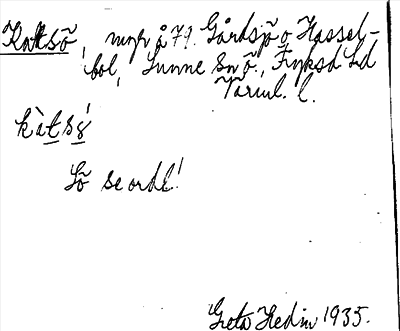 Kattsõ, mnp å 79. Gårdsjö o Hassel-
bol, Sunne sn ö., Fryksd. hd
Värml. l.
kàtsɣ́
Sõ se ordl!
Greta Hedin 1935.